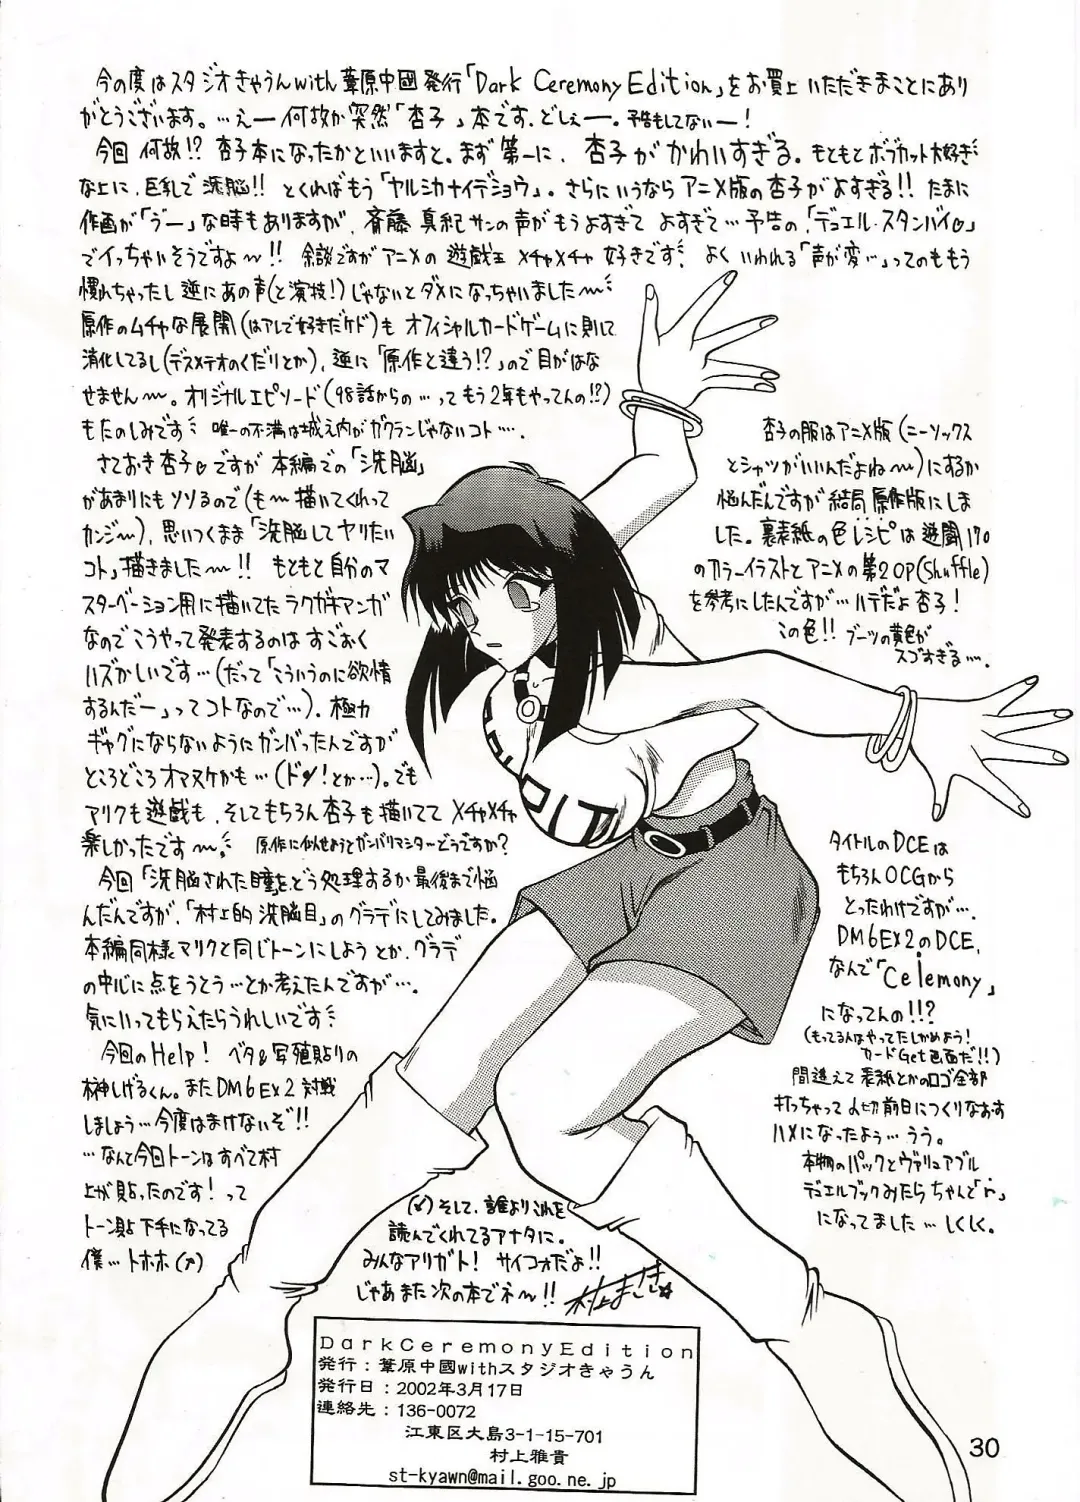 今の度はスタジオきゃうんwith葦原中國発行「Dark Ceremony Edition」をお買上いただきまことにあり
がとうございます。…えー何故か突然「杏子」本です。どしぇー。予告もしてないー!
今回何故!?杏子本になったかといいますと。まず第一に、杏子がかわいすぎる。もともとボブカット大好き
な上に、巨乳で洗脳!!とくればもう「ヤルシカナイデショウ」。さらにいうならアニメ版の杏子がよすぎる!!たまに
作画が「うー」な時もありますが、斎藤真紀サンの声がもうよすぎてよすぎて…予告の、「デュエル・スタンバイ♡」
でイっちゃいそうですよ〜!!余談ですがアニメの遊戯王メチャメチャ好きです。よくいわれる「声が変…」ってのももう
慣れちゃったし逆にあの声(と演技!)じゃないとダメになっちゃいました〜
原作のムチャな展開(はアレで好きだケド)もオフィシャルカードゲームに則して
消化してるし(デスメテオのくだりとか)、逆に「原作と違う!?」ので目がはな
せません〜。オリジナルエピソード(98話からの…ってもう2年もやってんの!?)
もたのしみです 唯一の不満は城之内がガクランじゃないコト….
さておき杏子♡ですが本編での「洗脳」
があまりにもソソるので(も〜描いてくれって
カンジ〜)、思いつくまま「洗脳してヤりたい
コト」描きました〜!!もともと自分のマ
スターベーション用に描いてたラクガキマンガ
なのでこうやって発表するのはすごおく
ハズかしいです…(だって「こういうのに欲情
するんだー」ってコトなので…)。極力
ギャグにならないようにガンバったんですが
ところどころオマヌケかも…(ドン!とか…)。でも
マリクも遊戯も、そしてもちろん杏子も描いててメチャメチャ
楽しかったです〜。原作に似せようとガンバリマシターどうですか?
今回「洗脳された瞳」をどう処理するか最後まで悩
んだんですが、「村上的洗脳目」のグラデにしてみました。
本編同様マリクと同じトーンにしようとか、グラデ
の中心に点をうとう…とか考えたんですが….
気にいってもらえたらうれしいです
今回のHelp!ベタ&写植貼りの
榊しげるくん。またDM6EX2対戦
しましょう…今度はまけないぞ!!
…なんて今回トーンはすべて村
上が貼ったのです!って
トーン貼よ下手になってる
僕…トホホ(ノ)
(ど)そして、誰よりこれを
読んでくれてるアナタに。
みんなアリガト!サイコォだよ!!
じゃあまた次の本でネ〜!!
杏子の服はアニメ版(ニーソックス
とシャツがいいんだよね〜)にするか
悩んだんですが結局原作版にしま
した。裏表紙の色レシピは遊闘170
のカラーイラストとアニメの第2OP(Shuffle)
を参考にしたんですが…ハデだよ杏子!
この色!!ブーツの黄色が
スゴすぎる….
タイトルのDCEは
もちろんOCGから
とったわけですが….
DM6EX2のDCE、
なんで「Celemony」
になってんの!!?
(もってる人はやってたしかめよう!
カードGet画面だ!!)
間違えて表紙とかのロゴ全部
打っちゃって〆切前日につくりなおす
ハメになったよう…うう。
本物のパックとヴァリュアブル
デュエルブックみたらちゃんと「r」
になってました…しくしく。
DarkCeremonyEdition
発行:葦原中國withスタジオきゃうん
発行日:2002年3月17日
連絡先:136-0072
江東区大島3-1-15-701
村上雅貴
st-kyawn@mail.goo.ne.jp
30